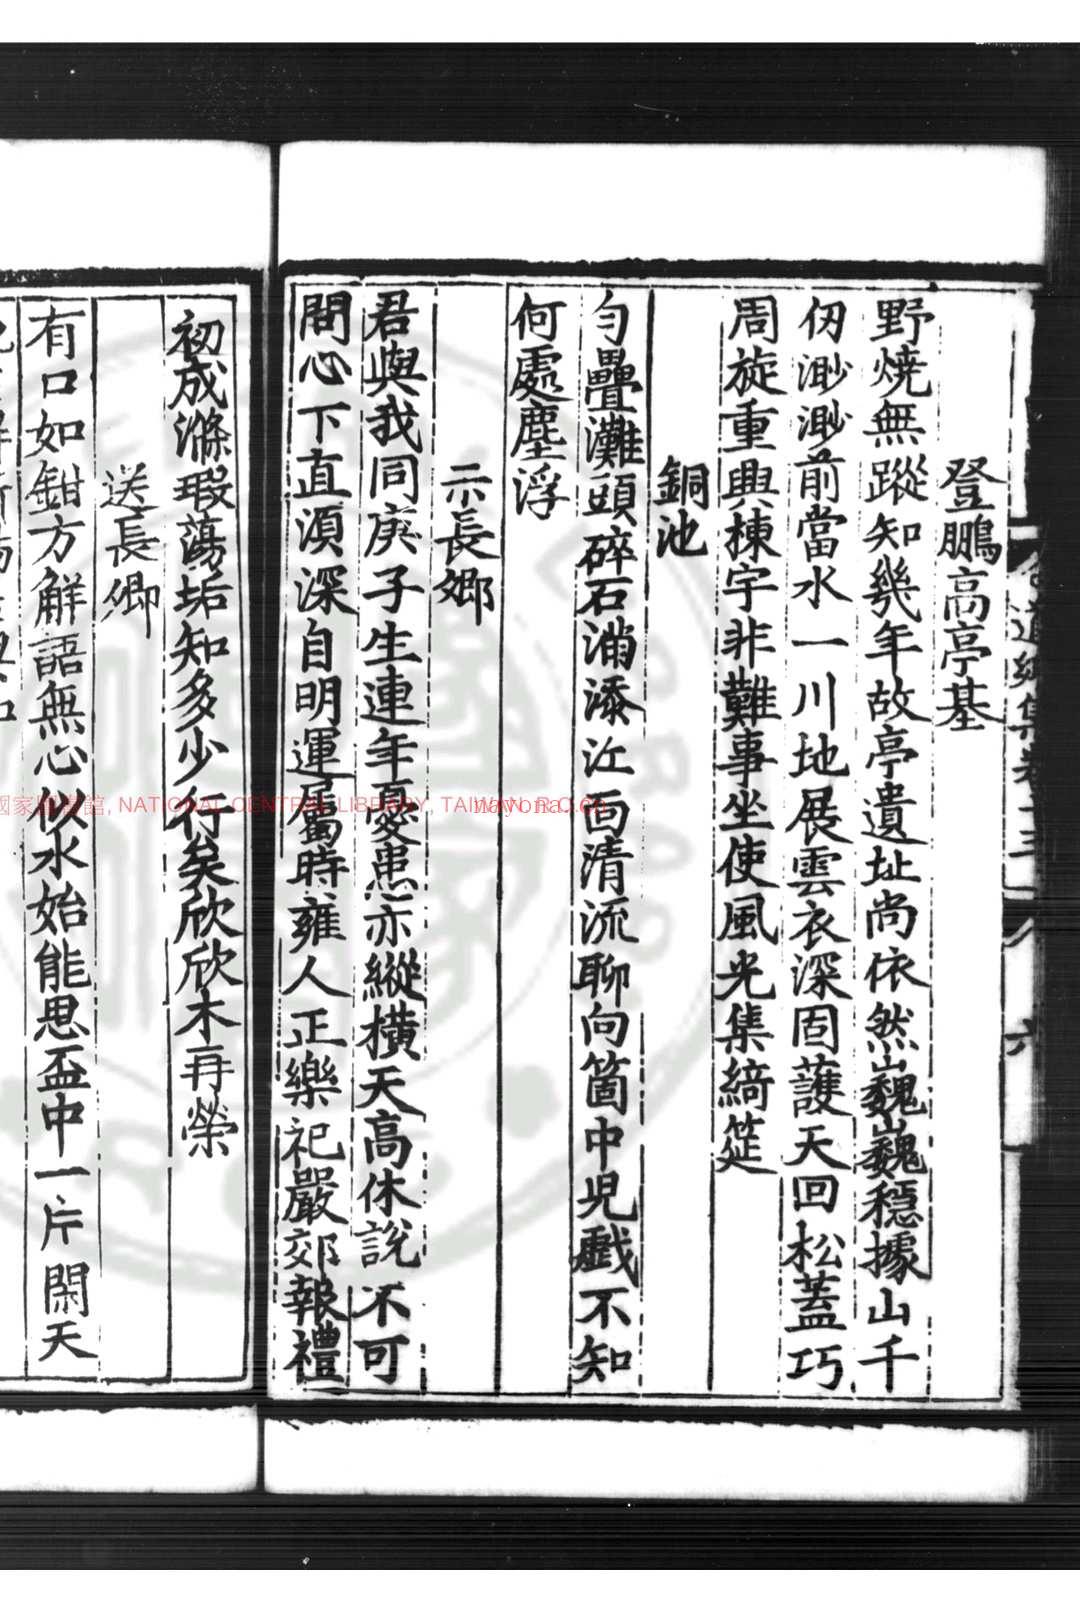 登鵬高亭基
野燒無蹤知幾年故亭遺址尚依然巍巍穩據山千
仞渺渺前當水一川地展雲衣深固護天回松蓋巧
周旋重興棟宇非難事坐使風光集綺筵
銅池
勻疊灘頭碎石滿添江面清流聊向箇中児戲不知
何處塵浮
示長卿
君與我同庚子生連年憂患亦縱橫天高休說不可
問心下直須深自明運屬時雍人正樂祀嚴郊報禮
初成滌瑕蕩垢知多少行矣欣欣木再榮
送長卿
有口如鉗方解語無心似水始能思盃中一片閑天
國家圖書館, NATIONAL CENTRAL LIBRARY, TAIWAN, R.O.C